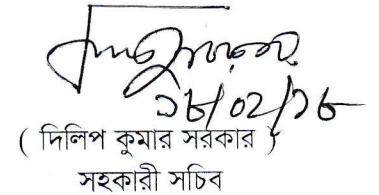 ১৮/০২/১৮
( দিলিপ কুমার সরকার )
সহকারী সচিব